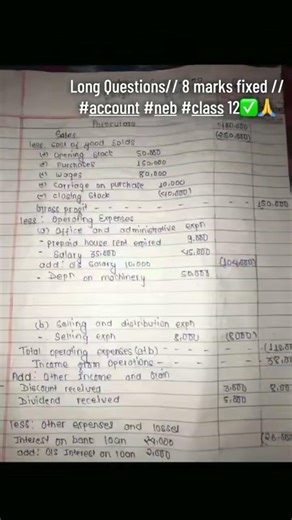 Long Questions// 8 marks fixed //
#account #neb #class 12✅🙏
Particulars
Sales
less: cost of good solds (250,000)
a) opening stock 50,000
b) Purchases 150,000
c) wages 80,000
d) carriage on purchase 10,000
e) closing stock (40,000)
Gross profit 150,000
less: Operating Expenses
(a) Office and administrative expn
- Prepaid house rent expired 9,000
- Salary 35,000 45,000
add: o/s Salary 10,000 (104,000)
- Depn on machinery 50,000
(b) Selling and distribution expn
- Selling expn 8,000 (8000)
Total operating expenses (a+b)
Income from operations 38,00
Add: Other Income and Gain
Discount received 3,000 8,00
Dividend received 5,000
less: Other expenses and losses
Interest on bank loan
add: O/S Interest on loan 2,000